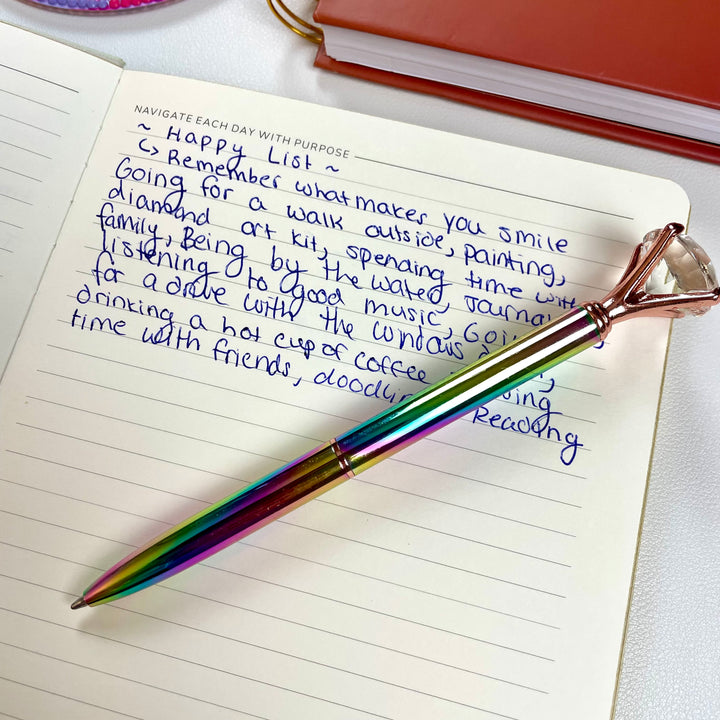 NAVIGATE EACH DAY WITH PURPOSE
~ Happy List ~
↳ Remember what makes you smile
Going for a walk outside, painting,
diamond art kit, spending time with
family, Being by the water,
listening to good music,
for a drive with the windows
drinking a hot cup of coffee
time with friends, Reading